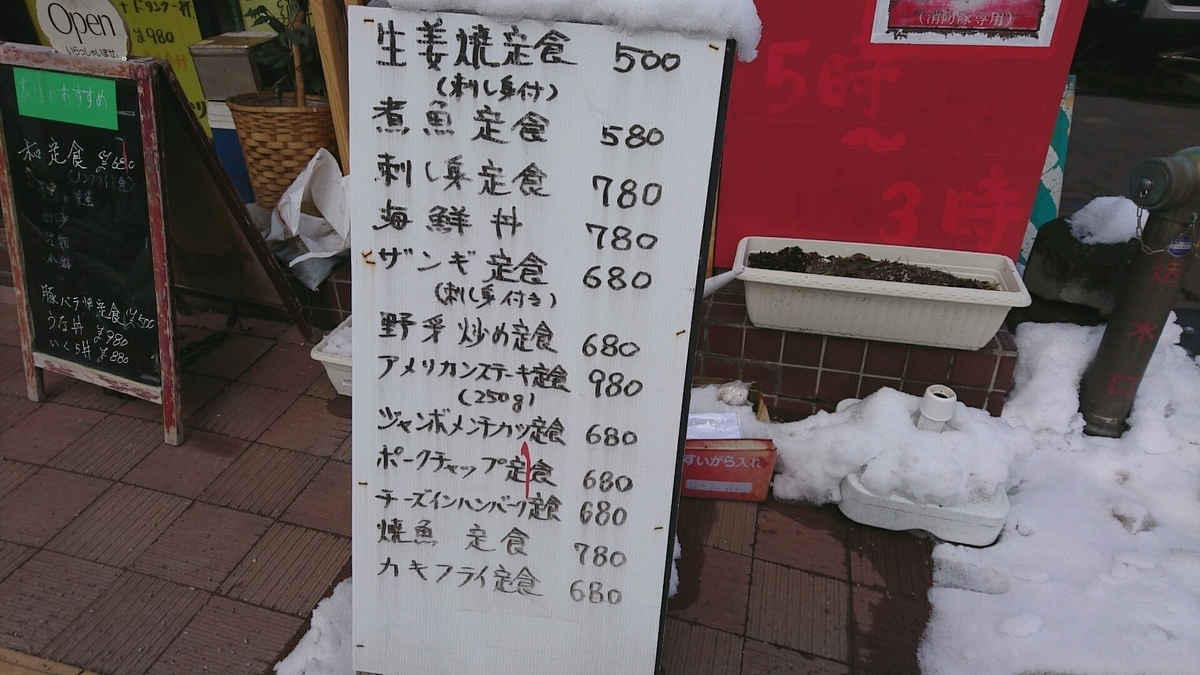 Open
いらっしゃいませ
+ドリンク一杯
¥980
おすすめ
和定食 ¥680
豚バラ焼定食 ¥500
うな丼 ¥980
いくら丼 ¥880
生姜焼定食 500
(刺し身付)
煮魚定食 580
刺し身定食 780
海鮮丼 780
ザンギ定食 680
(刺し身付き)
野菜炒め定食 680
アメリカンステーキ定食 980
(250g)
ジャンボメンチカツ定食 680
ポークチャップ定食 680
チーズインハンバーグ定食 680
焼魚定食 780
カキフライ定食 680
(消防隊専用)
5時
~
3時
すいがら入れ
送水口